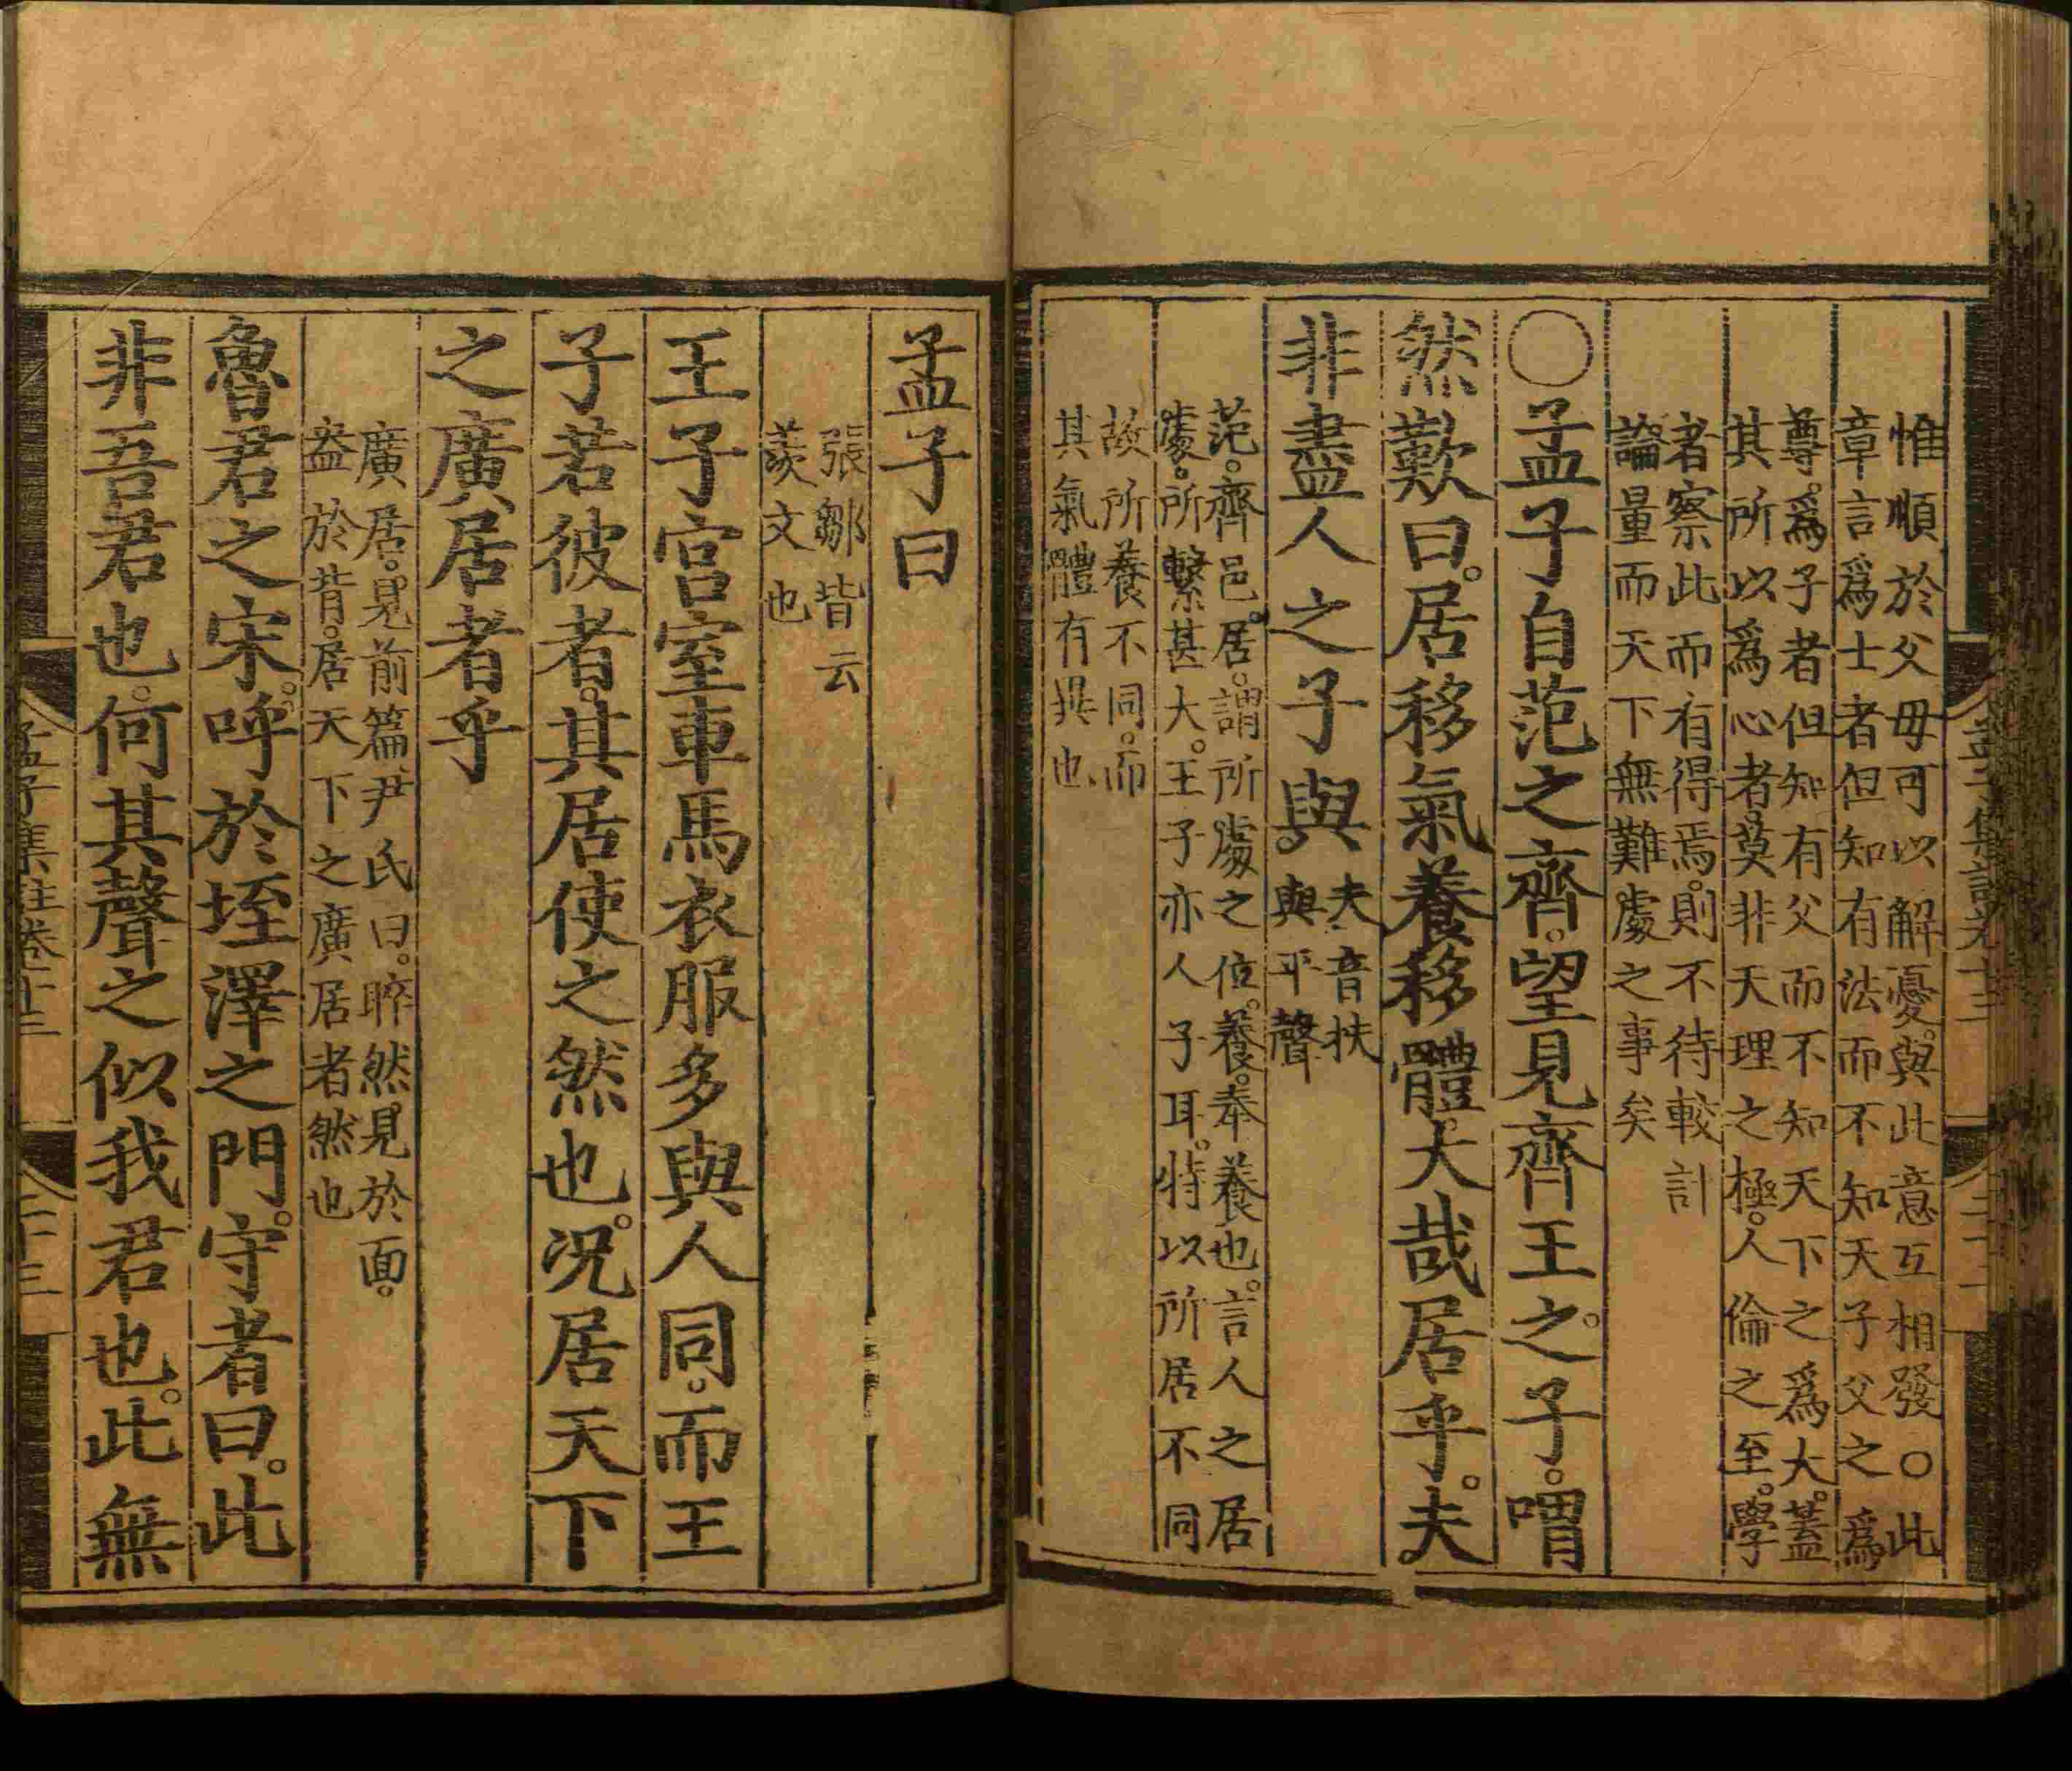 惟順於父母可以解憂。與此意互相發○此
章言爲士者但知有法而不知天子父之爲
尊。爲子者但知有父而不知天下之爲大。蓋
其所以爲心者。莫非天理之極。人倫之至。學
者察此而有得焉。則不待較計
論量而天下無難處之事矣
○孟子自范之齊。望見齊王之。子。喟
然歎曰。居移氣養移體。大哉居乎。夫。
非盡人之子與
夫音扶
與平聲
范。齊邑。居。謂所處之位。養。奉養也。言人之居
處。所繫甚大。王子亦人子耳。特以所居不同
故所養不同。而
其氣體有異也
孟子曰
張鄒皆云
羨文也
王子宮室車馬衣服多與人同。而王
子若彼者。其居使之然也。況居天下
之廣居者乎
廣居。見前篇。尹氏曰。睟然見於面。
盎於背。居天下之廣居者然也
魯君之宋。呼於垤澤之門。守者曰。此
非吾君也。何其聲之似我君也。此無
孟子集註卷十三
二十三